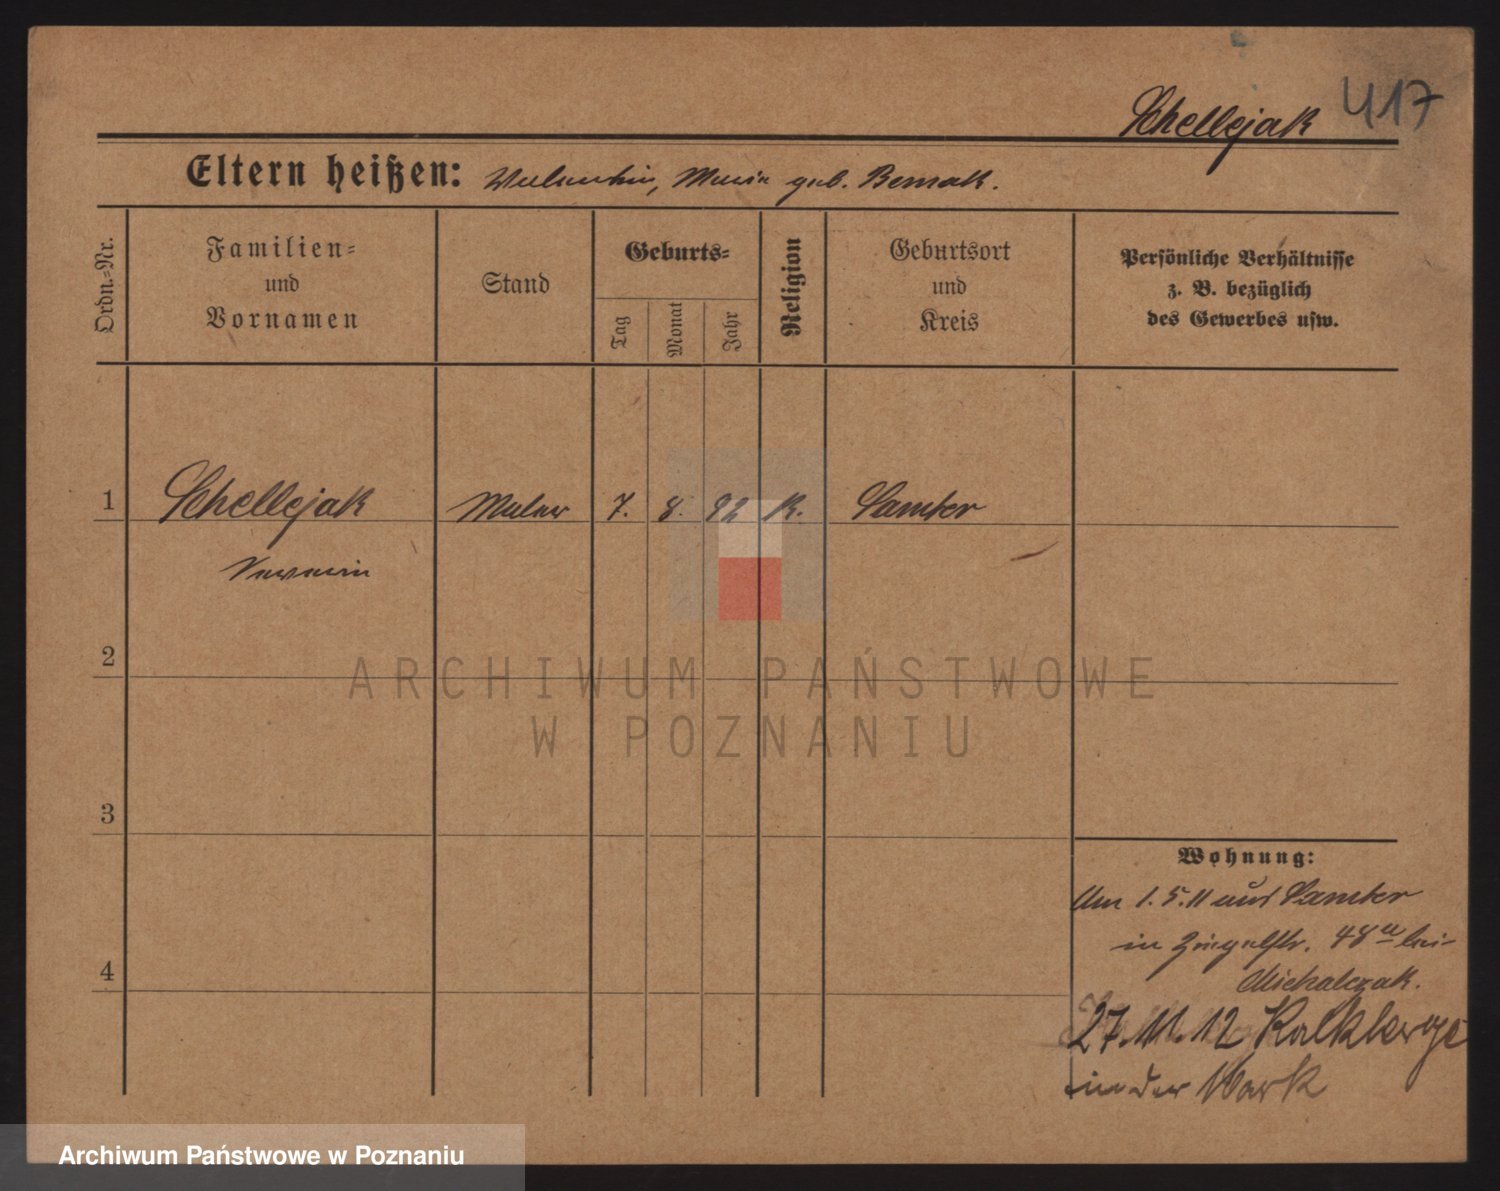 Schellejak 417
Eltern heißen: Valentin, Maria geb. Bernak.
Ordn.-Nr.
Familien-
und
Vornamen
Stand
Geburts-
Tag
Monat
Jahr
Religion
Geburtsort
und
Kreis
Persönliche Verhältnisse
z. B. bezüglich
des Gewerbes usw.
1 Schellejak Maler 7. 8. 92 K. Samter
2
3
4
Wohnung:
Am 1.5.11 aus Samter
in Ziegelstr. 48a bei
Michalczak.
27.11.12 Kalkberge
in der Mark
ARCHIWUM PAŃSTWOWE
W POZNANIU
Archiwum Państwowe w Poznaniu